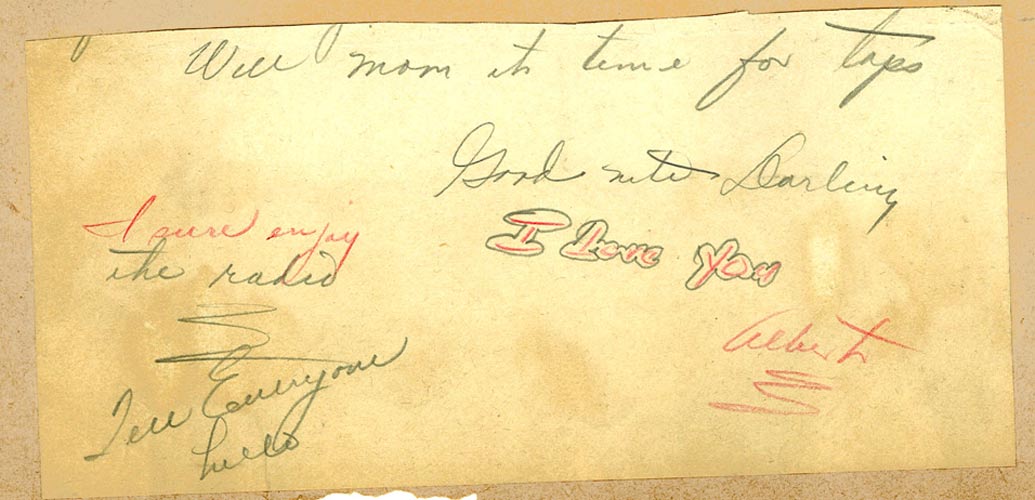 Well mom its time for taps
Good nite Darling
I Love You
Albert
I sure enjoy
the radio
Tell Everyone
hello